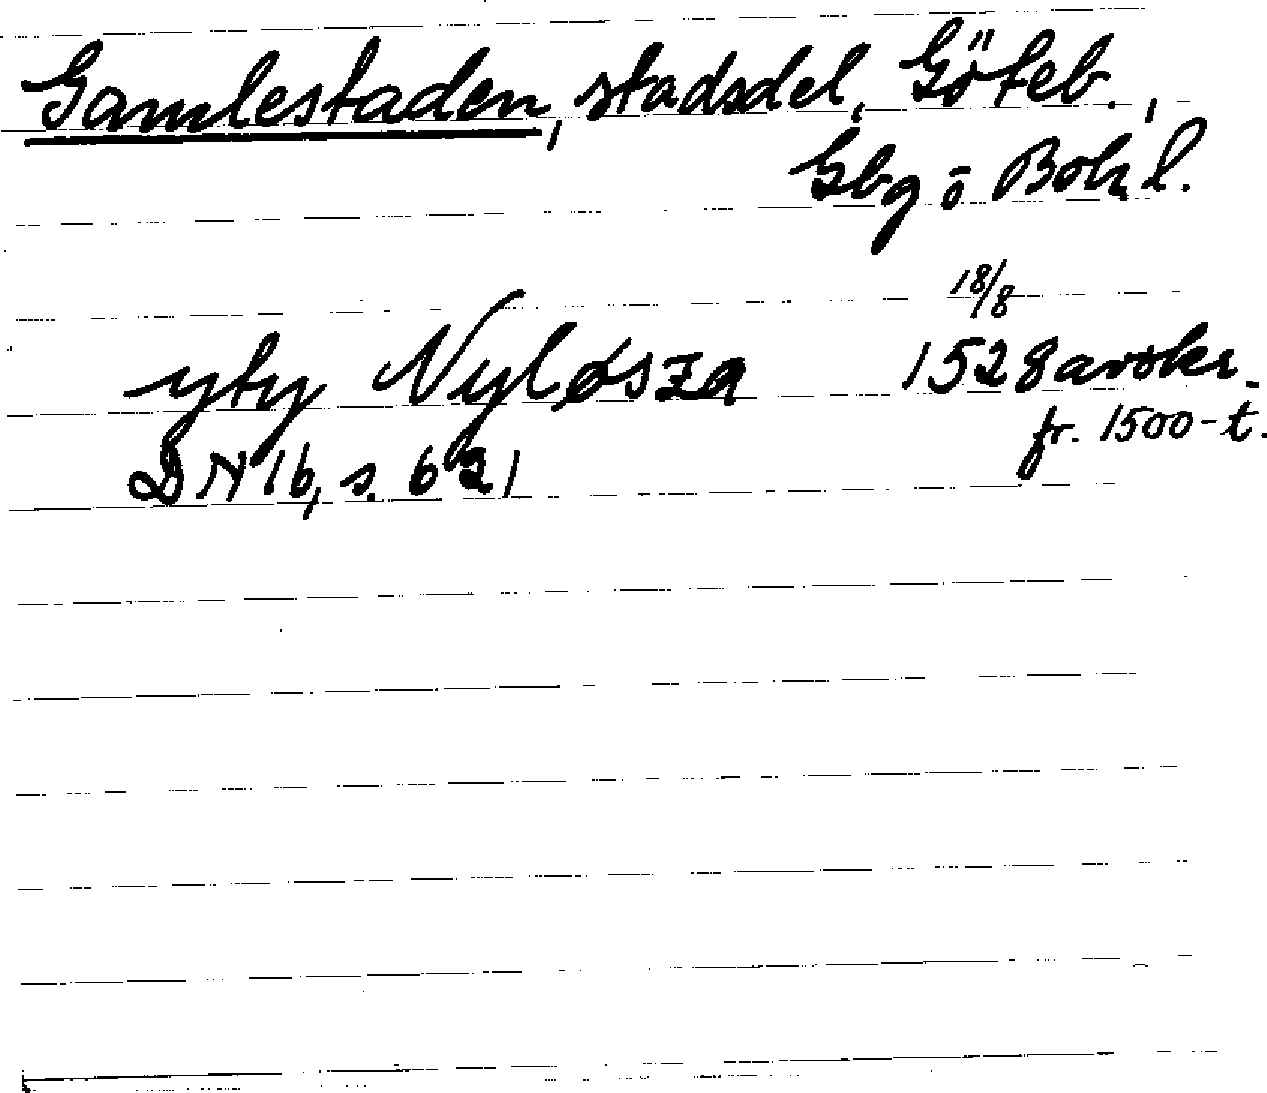 Gamlestaden, stadsdel, Göteb.,
Gbg o Boh l.
yty Nyløsza 18/8 1528 avskr.
fr. 1500-t.
DN 16, s. 621